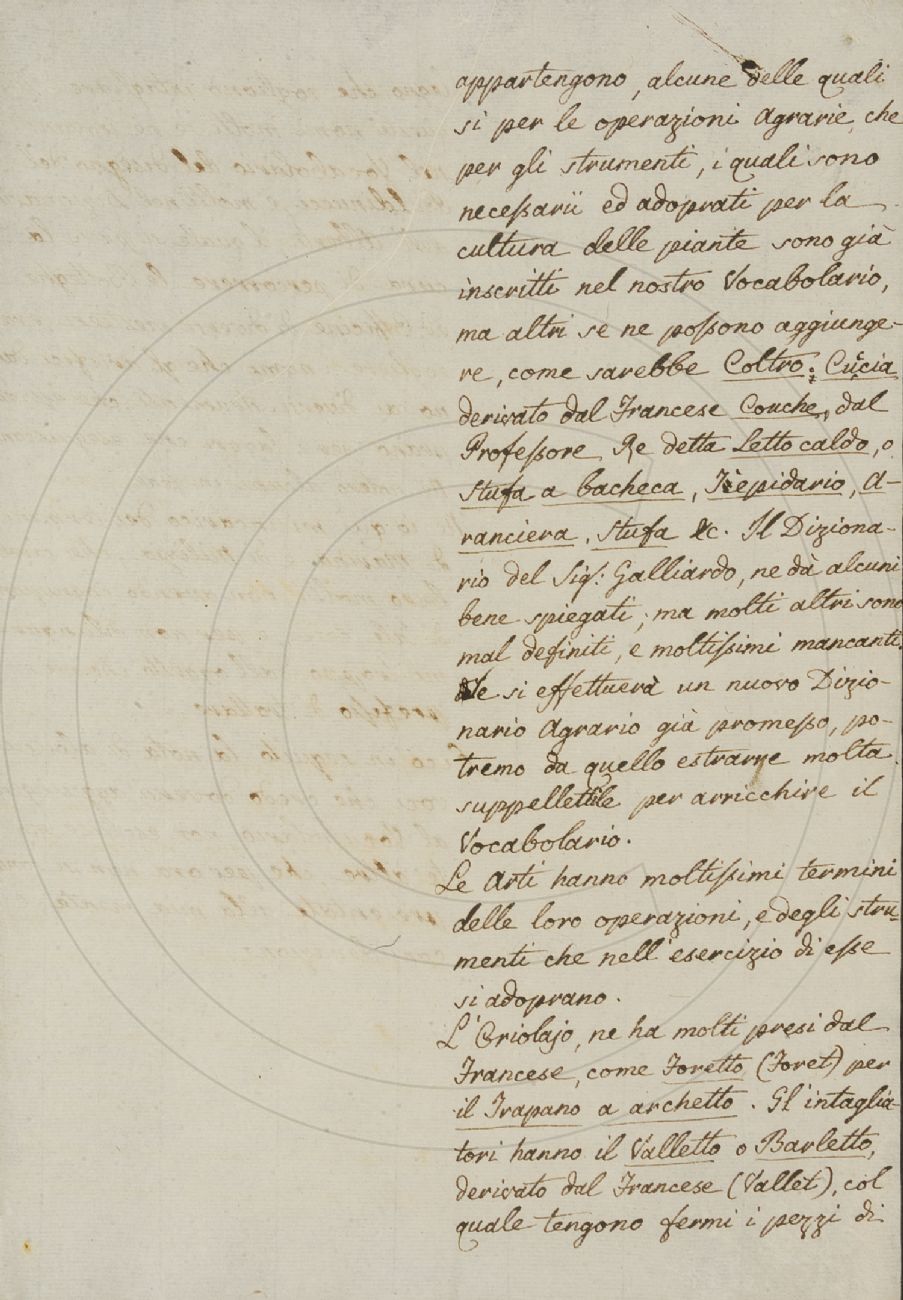 appartengono, alcune delle quali
si per le operazioni Agrarie, che
per gli strumenti, i quali sono
necessarii ed adoprati per la
cultura delle piante sono già
inscritti nel nostro Vocabolario,
ma altri se ne possono aggiunge-
re, come sarebbe Coltro: Cuccia
derivato dal Francese Couche, dal
Professore Re detta Letto caldo, o
Stufa a bacheca, Tepidario, A-
ranciera, Stufa &c. Il Diziona-
rio del Sig.: Galliardo, ne dà alcuni
bene spiegati, ma molti altri sono
mal definiti, e moltissimi mancanti.
Se si effettuerà un nuovo Dizio-
nario Agrario già promesso, po-
tremo da quello estrarre molta
suppellettile per arricchire il
Vocabolario.
Le Arti hanno moltissimi termini
delle loro operazioni, e degli stru-
menti che nell'esercizio di esse
si adoprano.
L'Oriolajo, ne ha molti presi dal
Francese, come Foretto (Foret) per
il Trapano a archetto. Gl'intaglia-
tori hanno il Valletto o Barletto,
derivato dal Francese (Vallet), col
quale tengono fermi i pezzi di